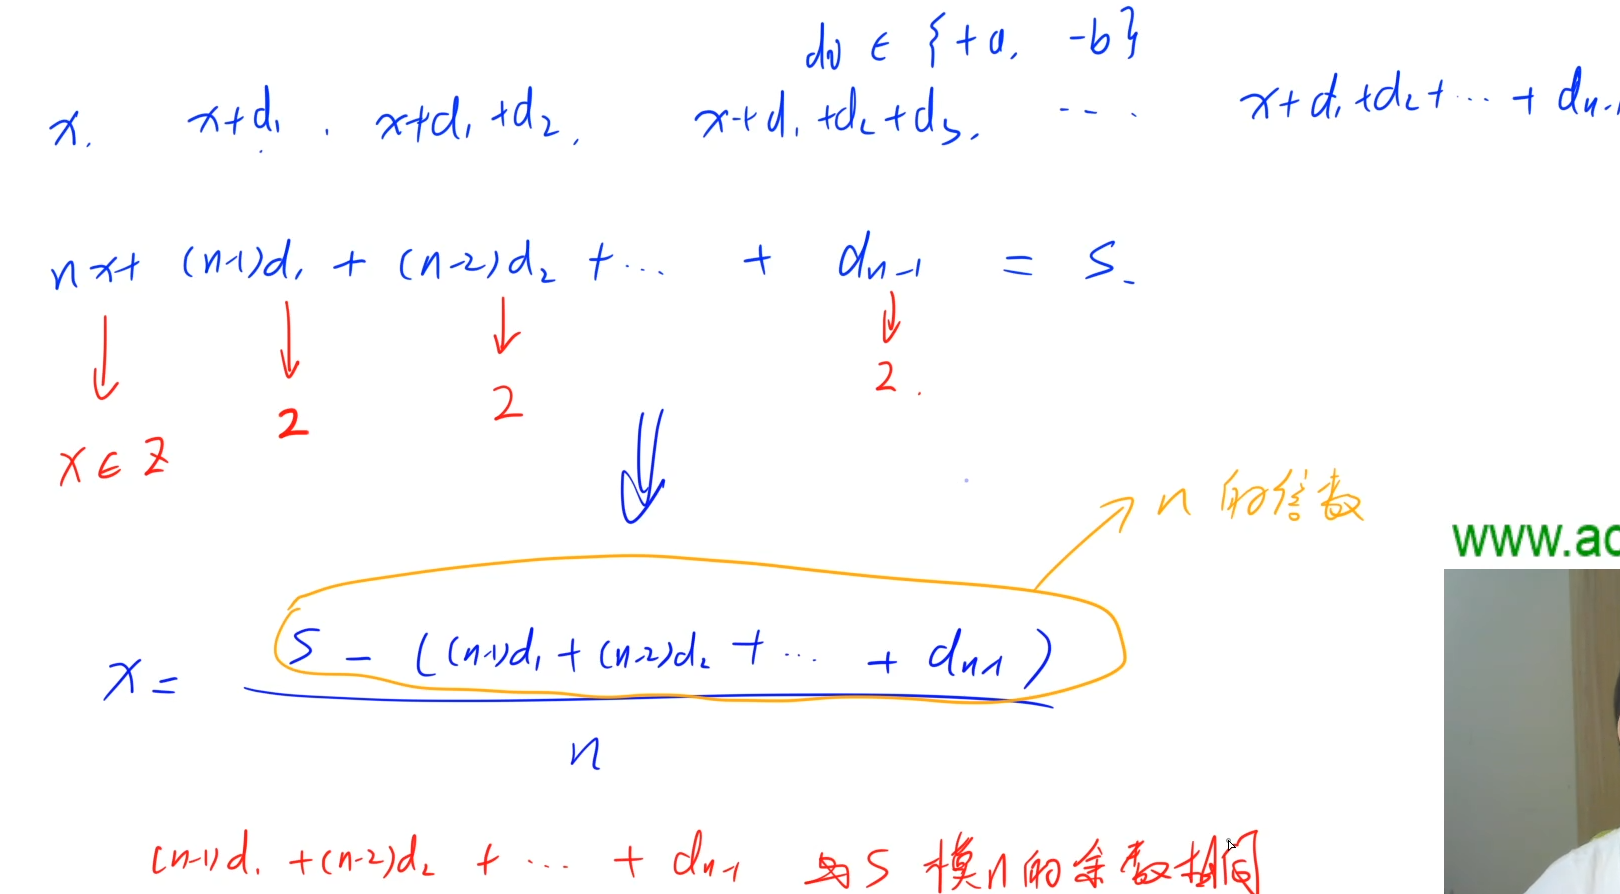 d_i ∈ {+a, -b}
x, x+d₁, x+d₁+d₂, x+d₁+d₂+d₃, ... x+d₁+d₂+...+dₙ₋₁
nx+(n-1)d₁+(n-2)d₂+...+dₙ₋₁=S
2 2 2
x∈Z
n的倍数
www.ac
x= S-((n-1)d₁+(n-2)d₂+...+dₙ₋₁)
n
(n-1)d₁+(n-2)d₂+...+dₙ₋₁ 与S模n的余数相同